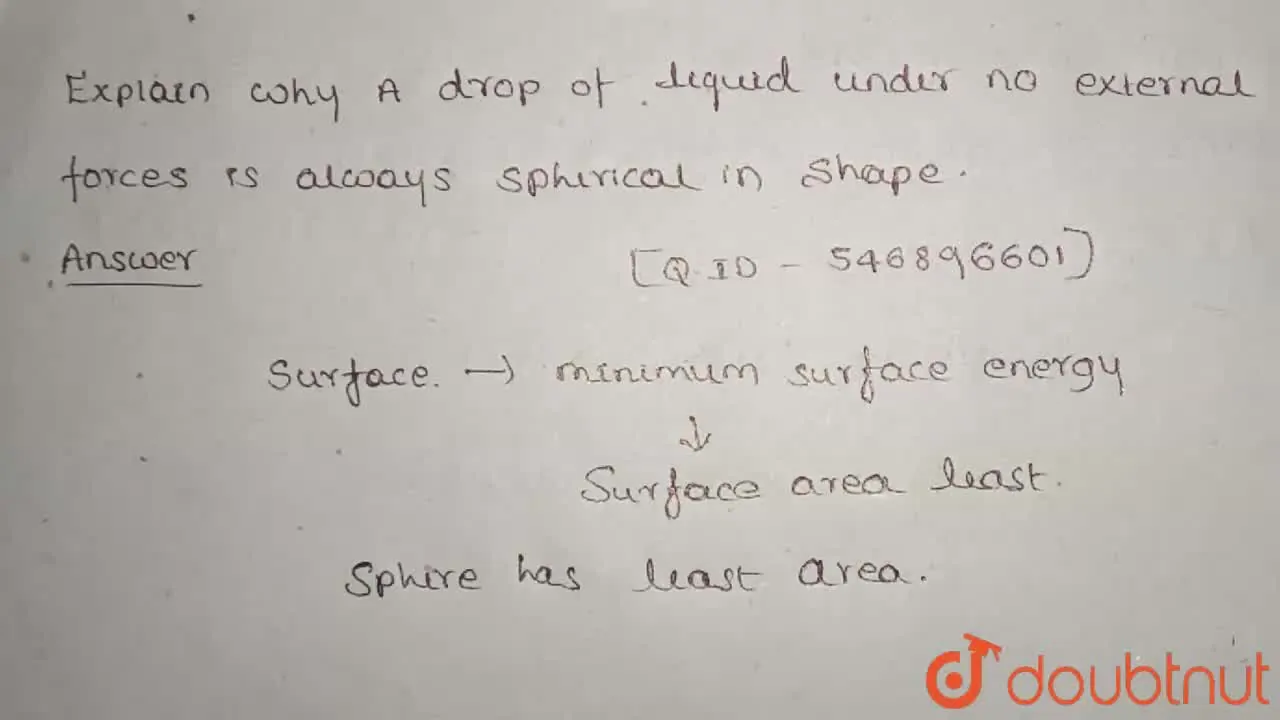 Explain why A drop of liquid under no external
forces is always spherical in shape.
Answer
[Q.ID - 546896601]
Surface. → minimum surface energy
↓
Surface area least.
Sphire has least area.
doubtnut